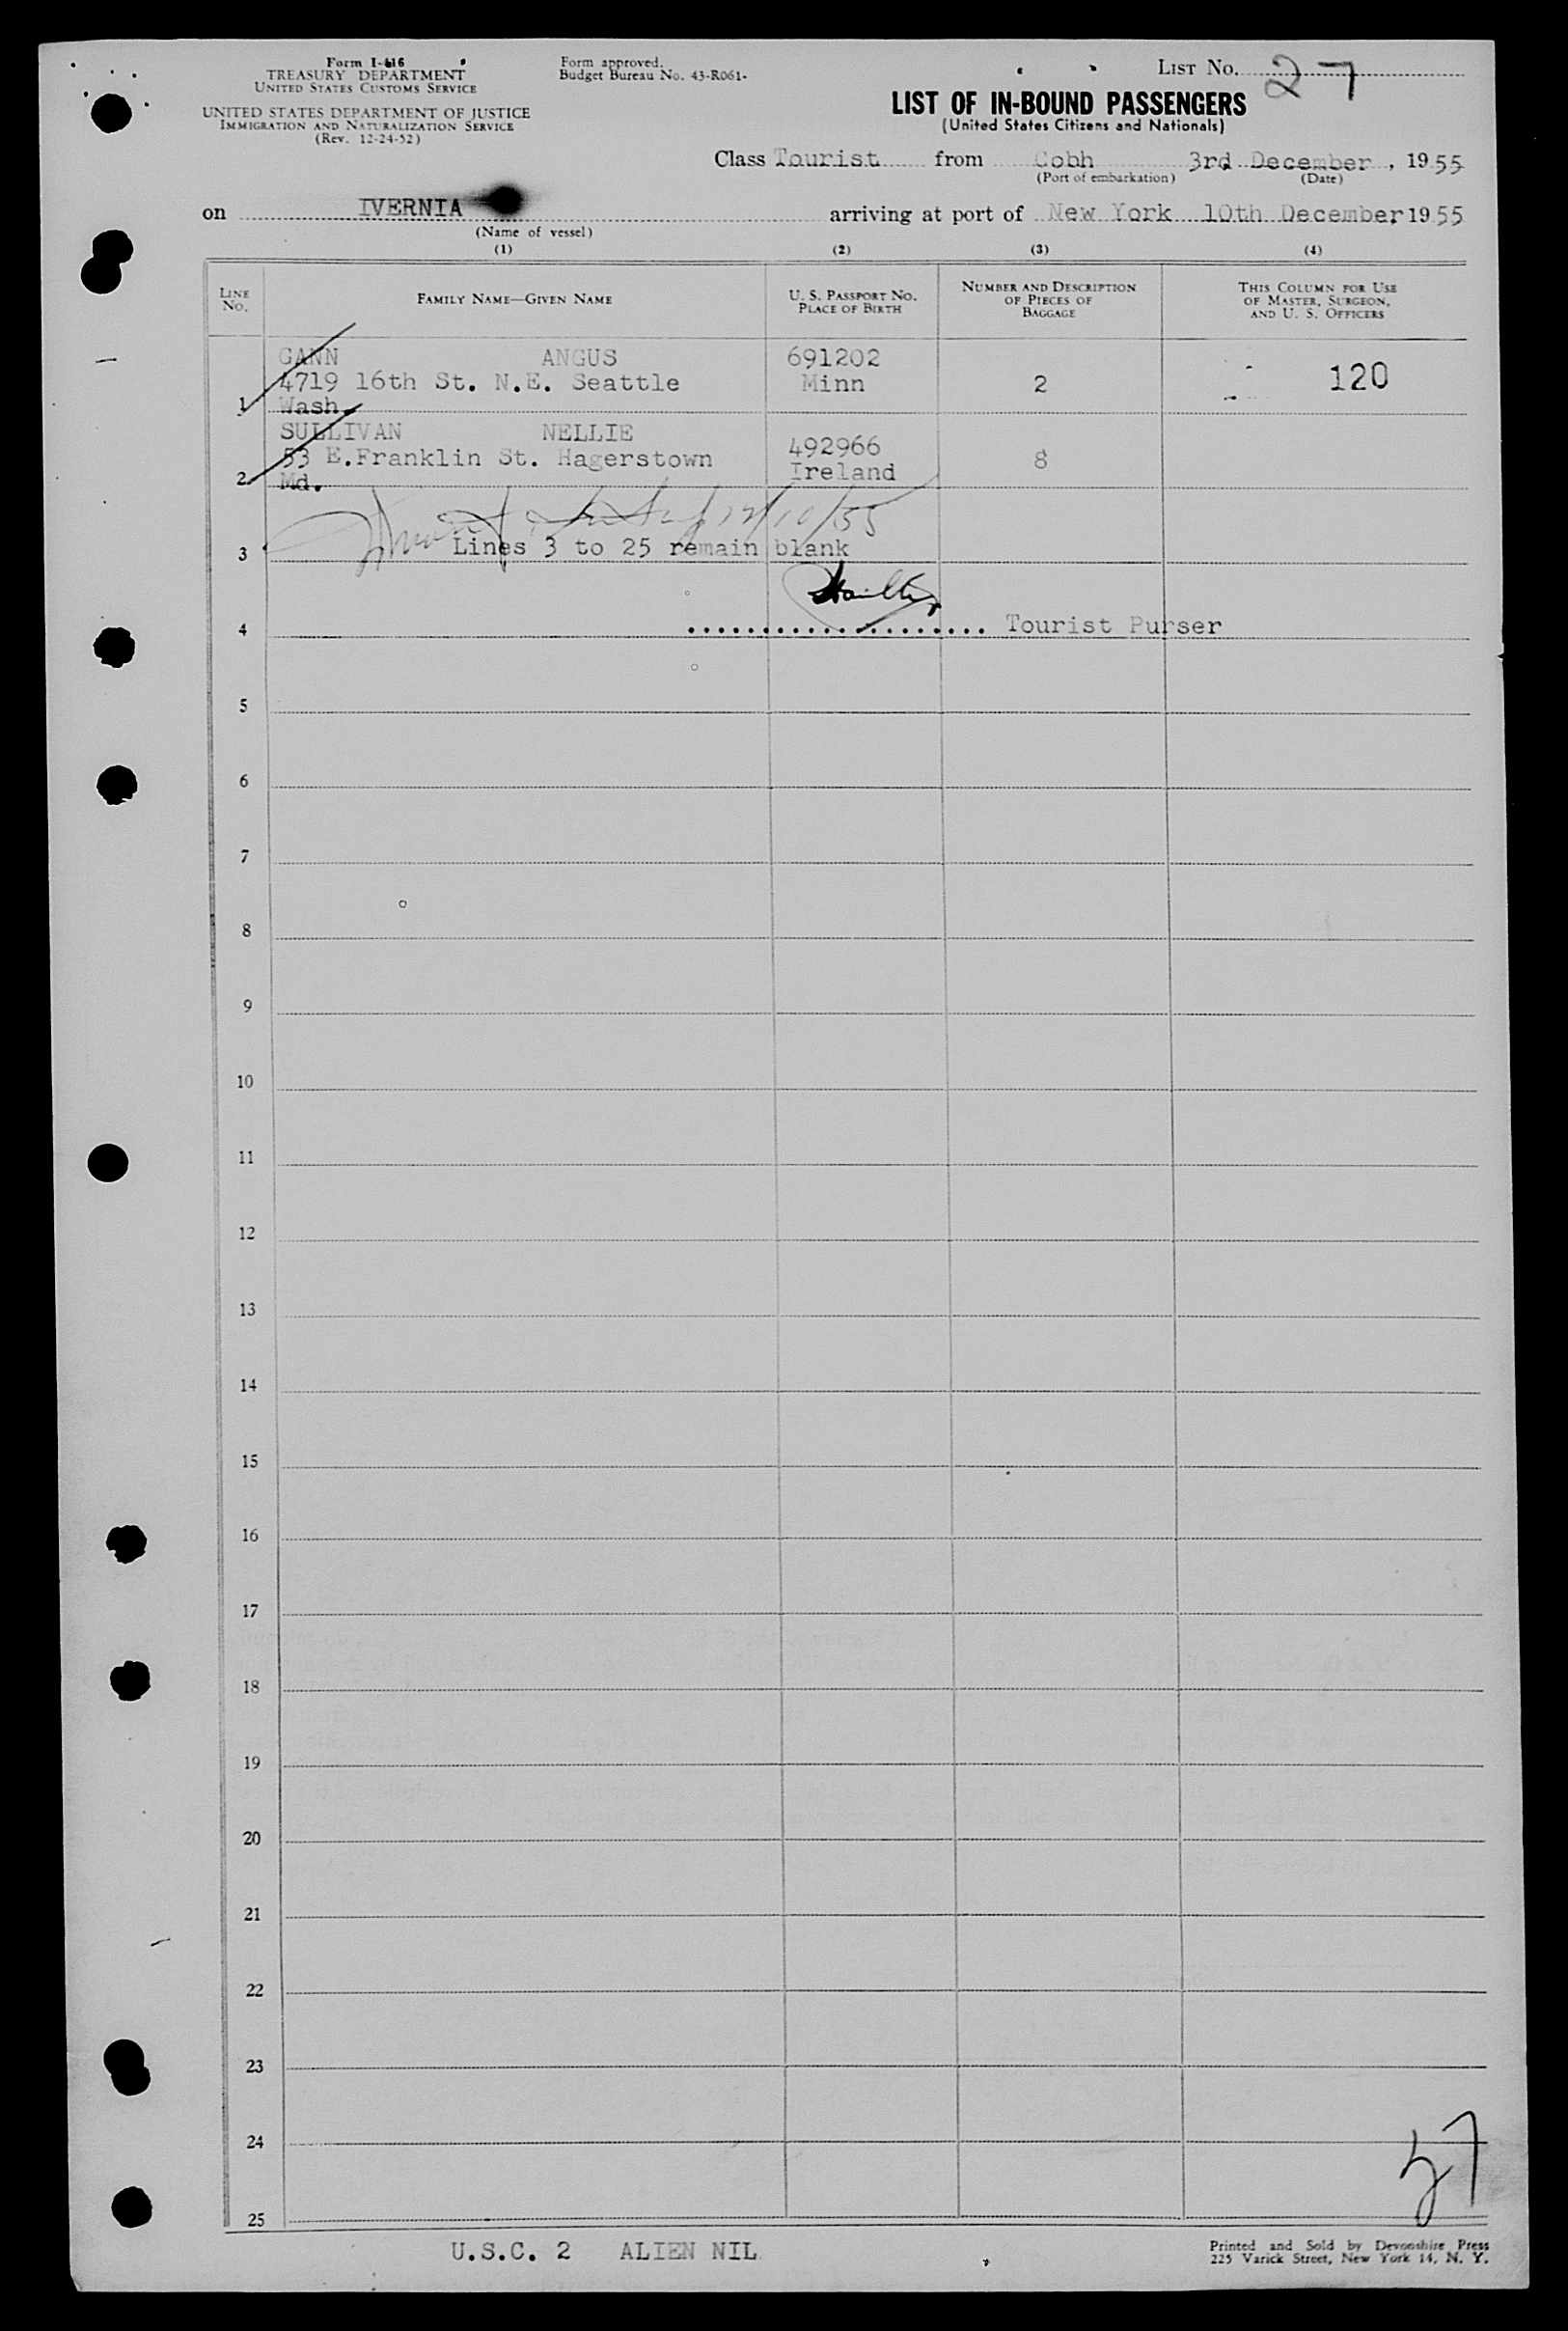 Form I-416
TREASURY DEPARTMENT
UNITED STATES CUSTOMS SERVICE
UNITED STATES DEPARTMENT OF JUSTICE
IMMIGRATION AND NATURALIZATION SERVICE
(Rev. 12-24-52)
Form approved.
Budget Bureau No. 43-R061-
LIST No. 27
LIST OF IN-BOUND PASSENGERS
(United States Citizens and Nationals)
Class Tourist from Cobh 3rd December, 1955
(Port of embarkation) (Date)
on IVERNIA arriving at port of New York 10th December, 1955
(Name of vessel)
(1) (2) (3) (4)
LINE NO. FAMILY NAME—GIVEN NAME U. S. PASSPORT NO. PLACE OF BIRTH NUMBER AND DESCRIPTION OF PIECES OF BAGGAGE THIS COLUMN FOR USE OF MASTER, SURGEON, AND U. S. OFFICERS
GANN ANGUS 691202
4719 16th St. N.E. Seattle Minn 2 120
1 Wash.
SULLIVAN NELLIE 492966
53 E.Franklin St. Hagerstown Ireland 8
2 Md.
12/10/55
3 Lines 3 to 25 remain blank
4 .................... Tourist Purser
5
6
7
8
9
10
11
12
13
14
15
16
17
18
19
20
21
22
23
24
57
25
U.S.C. 2 ALIEN NIL
Printed and Sold by Devonshire Press
225 Varick Street, New York 14, N. Y.